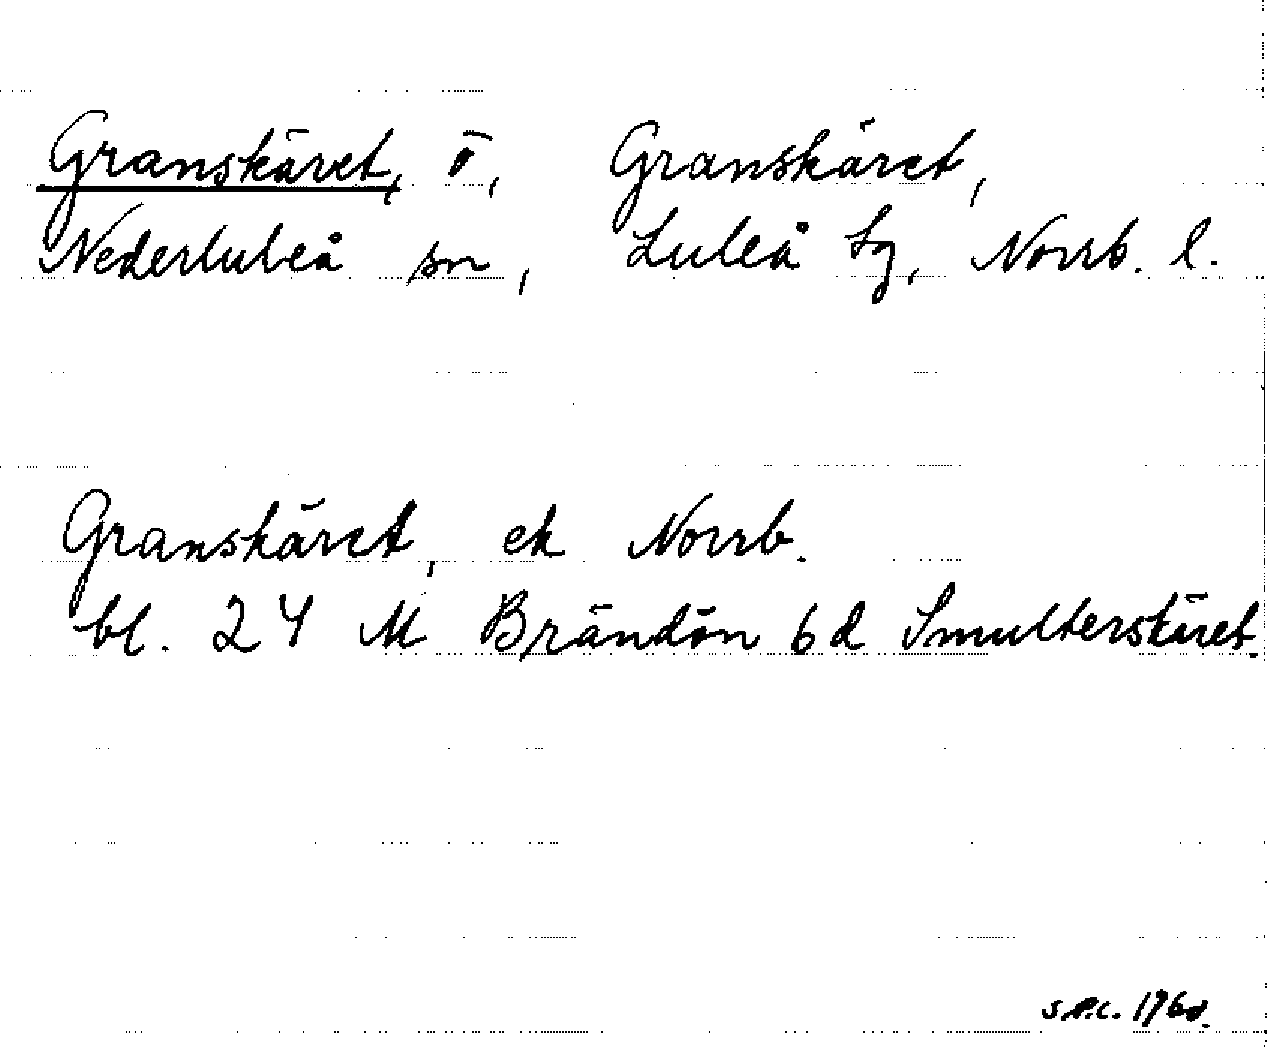 Granskäret, ö, Granskäret,
Nederluleå sn, Luleå tg, Norrb. l.
Granskäret, ek Norrb.
bl. 24 M Brändön 6d Smulterskäret.